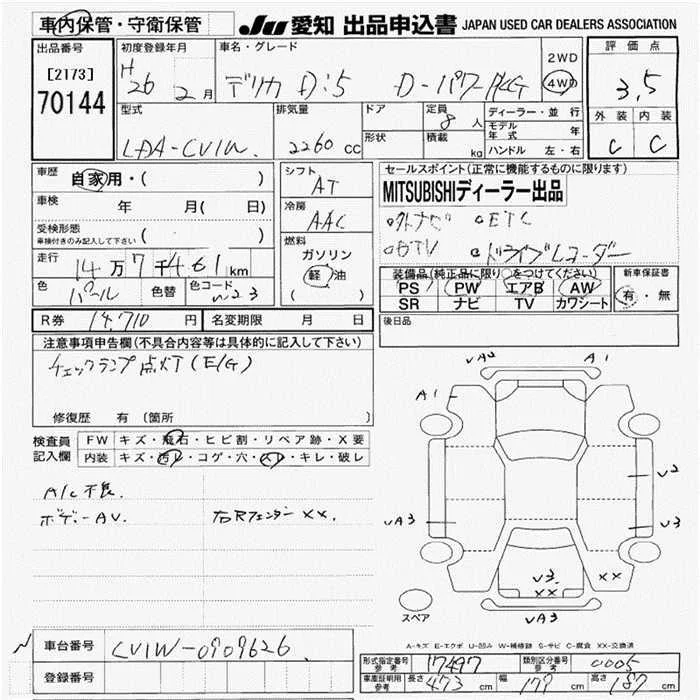 車内保管・守衛保管 JU 愛知 出品申込書 JAPAN USED CAR DEALERS ASSOCIATION
出品番号 初度登録年月 車名・グレード 評価点
[2173] H 26 2月 デリカ D:5 D-パワーPKG 2WD 4WD 3.5
70144
型式 排気量 ドア 定員 8人 ディーラー・並行 外装 内装
LDA-CV1W. 2260cc 形状 積載 kg モデル年式 年 C C
ハンドル 左・右
車歴 自家用・( ) シフト AT セールスポイント(正常に機能するものに限ります)
MITSUBISHIディーラー出品
車検 年 月( 日) 冷房 AAC
○外ナビ ○ETC
受検形態 ( )
車検付きのみ記入して下さい
○DTV ○ドライブレコーダー
走行 14万7千461km 燃料 ガソリン 軽油 ( )
装備品(純正品に限り○をつけてください) 新車保証書
色 パール 色替 色コード W23
PS PW エアB AW 有・無
SR ナビ TV カワシート
R券 14,710円 名変期限 月 日 後日品
注意事項申告欄(不具合内容等は具体的に記入して下さい)
チェックランプ点灯(E/G)
修復歴 有 〔箇所
検査員記入欄 FW キズ・飛石・ヒビ割・リペア跡・X要
内装 キズ・汚レ・コゲ・穴・スレ・キレ・破レ
A/C不良.
ボデーAV. 右Rフェンダー XX.
VA2 A1
A1
V2
VA3 V3
V3 XX XX
スペア VA3
A-キズ E-エクボ U-凹み W-補修跡 S-サビ C-腐食 XX-交換済
車台番号 CV1W-0909626
登録番号
形式指定番号 参考 17497 類別区分番号 参考 0005
車庫証明用 参考 長さ 473cm 幅 179cm 高さ 187cm